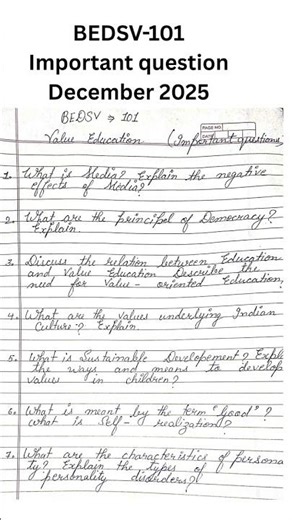 BEDSV-101
Important question
December 2025
PAGE NO.
DATE
BEDSV ⇒ 101
Value Education (Important questions
1. What is Media? Explain the negative
effects of Media?
2. What are the principel of Democracy?
Explain.
3. Discuss the relation between Education
and Value Education Describe the
need for Value-oriented Education,
4. What are the values underlying Indian
Culture? Explain
5. What is Sustainable Developement? Expla
the ways and means to develop
values in children?
6. What is meant by the term "Good"?
what is Self-realization?
7. What are the characteristics of persona
ty? Explain the types of
personality disorders?